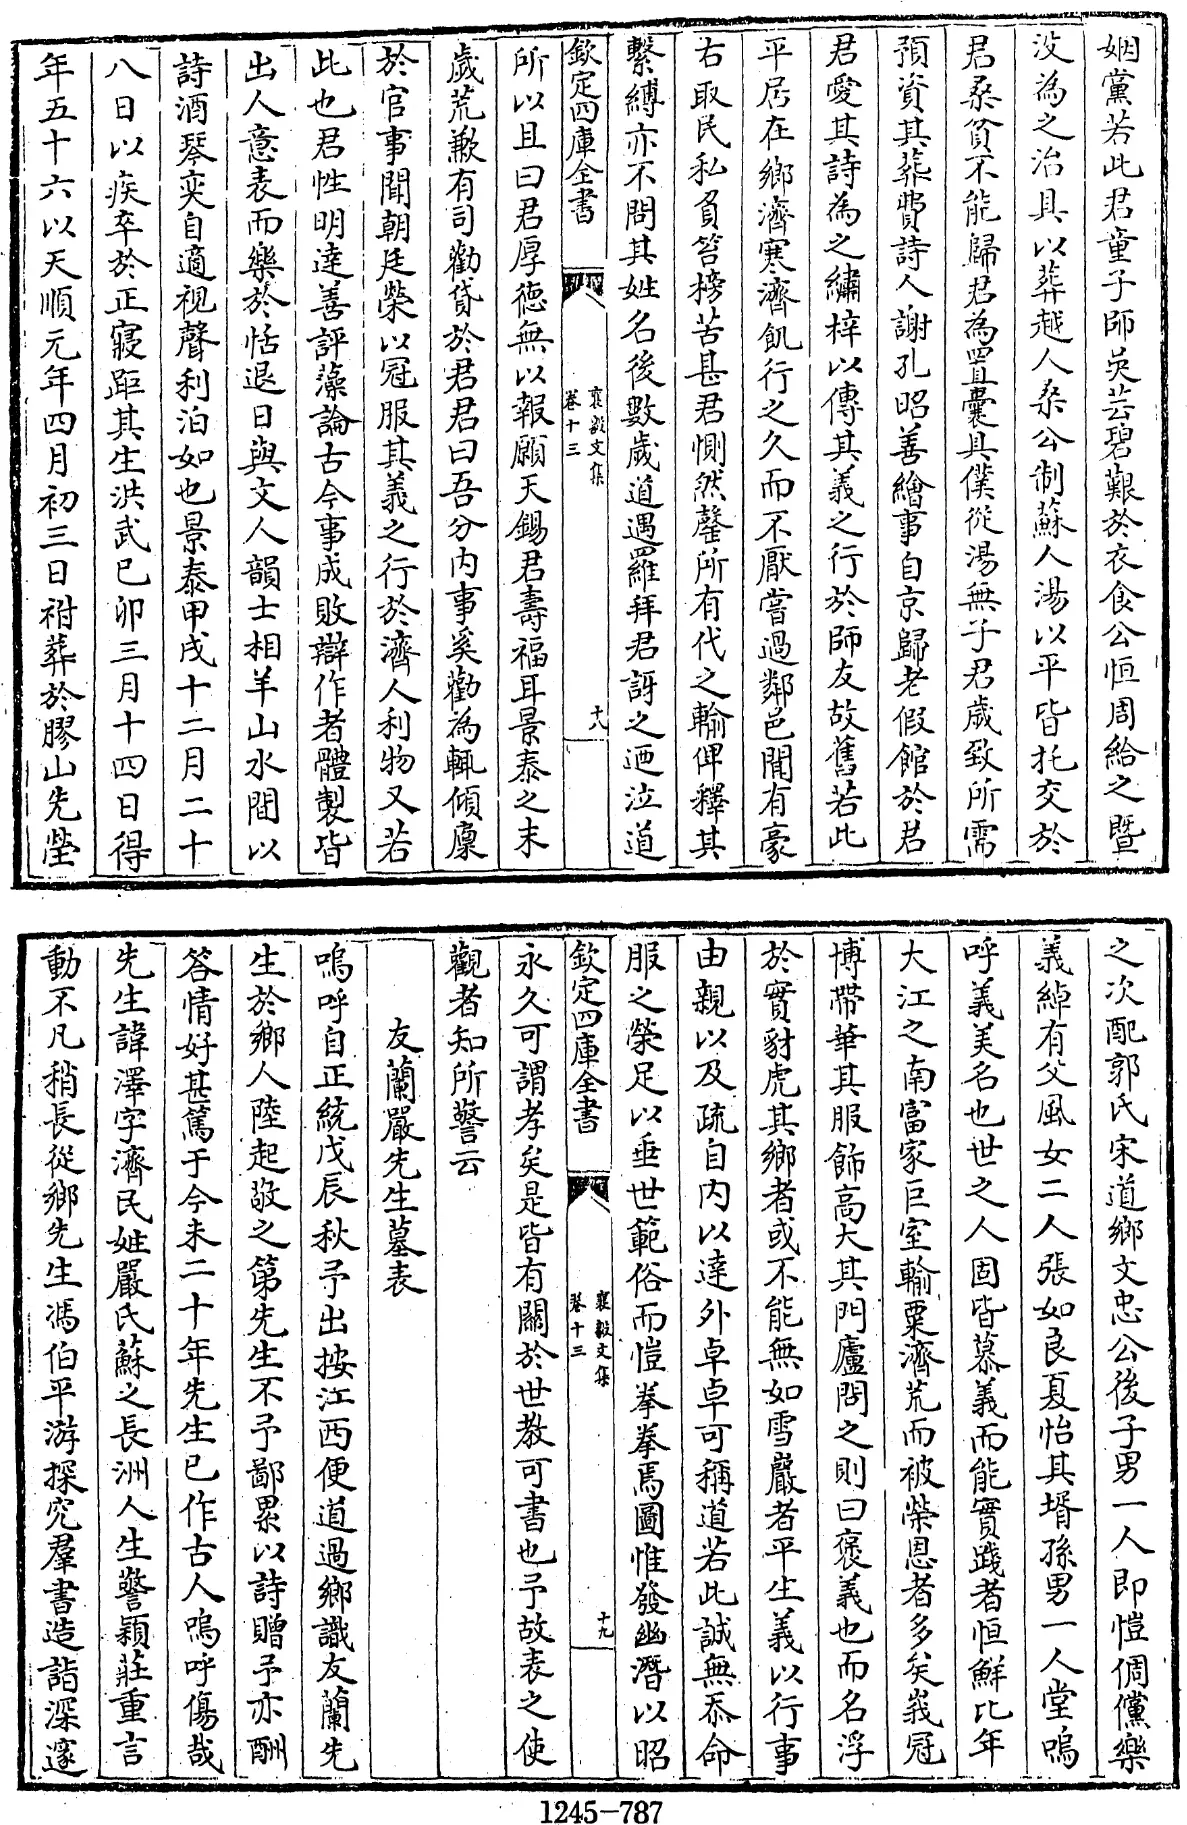 姻黨若此君童子師吳芸碧艱於衣食公恒周給之暨
沒為之治具以葬越人桑公制蘇人湯以平皆托交於
君桑貧不能歸君為置囊具僕從湯無子君歲致所需
預資其葬費詩人謝孔昭善繪事自京歸老假館於君
君愛其詩為之繡梓以傳其義之行於師友故舊若此
平居在鄉濟寒濟飢行之久而不厭嘗過鄰邑聞有豪
右取民私負笞榜苦甚君惻然罄所有代之輸俾釋其
繫縛亦不問其姓名後數歲道遇羅拜君訝之迺泣道
欽定四庫全書
襄毅文集
卷十三
十八
所以且曰君厚德無以報願天錫君壽福耳景泰之末
歲荒歉有司勸貸於君君曰吾分內事奚勸為輒傾廩
於官事聞朝廷榮以冠服其義之行於濟人利物又若
此也君性明達善評藻論古今事成敗辯作者體製皆
出人意表而樂於恬退日與文人韻士相羊山水間以
詩酒琴奕自適視聲利泊如也景泰甲戌十二月二十
八日以疾卒於正寢距其生洪武己卯三月十四日得
年五十六以天順元年四月初三日祔葬於膠山先塋
之次配郭氏宋道鄉文忠公後子男一人即愷倜儻樂
義綽有父風女二人張如良夏怡其壻孫男一人堂嗚
呼義美名也世之人固皆慕義而能實踐者恒鮮比年
大江之南富家巨室輸粟濟荒而被榮恩者多矣峩冠
博帶華其服飾高大其門廬問之則曰褒義也而名浮
於實豺虎其鄉者或不能無如雪巖者平生義以行事
由親以及疏自內以達外卓卓可稱道若此誠無忝命
服之榮足以垂世範俗而愷拳拳焉圖惟發幽潛以昭
欽定四庫全書
襄毅文集
卷十三
十九
永久可謂孝矣是皆有關於世教可書也予故表之使
觀者知所警云
友蘭嚴先生墓表
嗚呼自正統戊辰秋予出按江西便道過鄉識友蘭先
生於鄉人陸起敬之第先生不予鄙累以詩贈予亦酬
答情好甚篤于今未二十年先生已作古人嗚呼傷哉
先生諱澤字濟民姓嚴氏蘇之長洲人生警穎莊重言
動不凡稍長從鄉先生馮伯平游探究羣書造詣深邃
1245-787